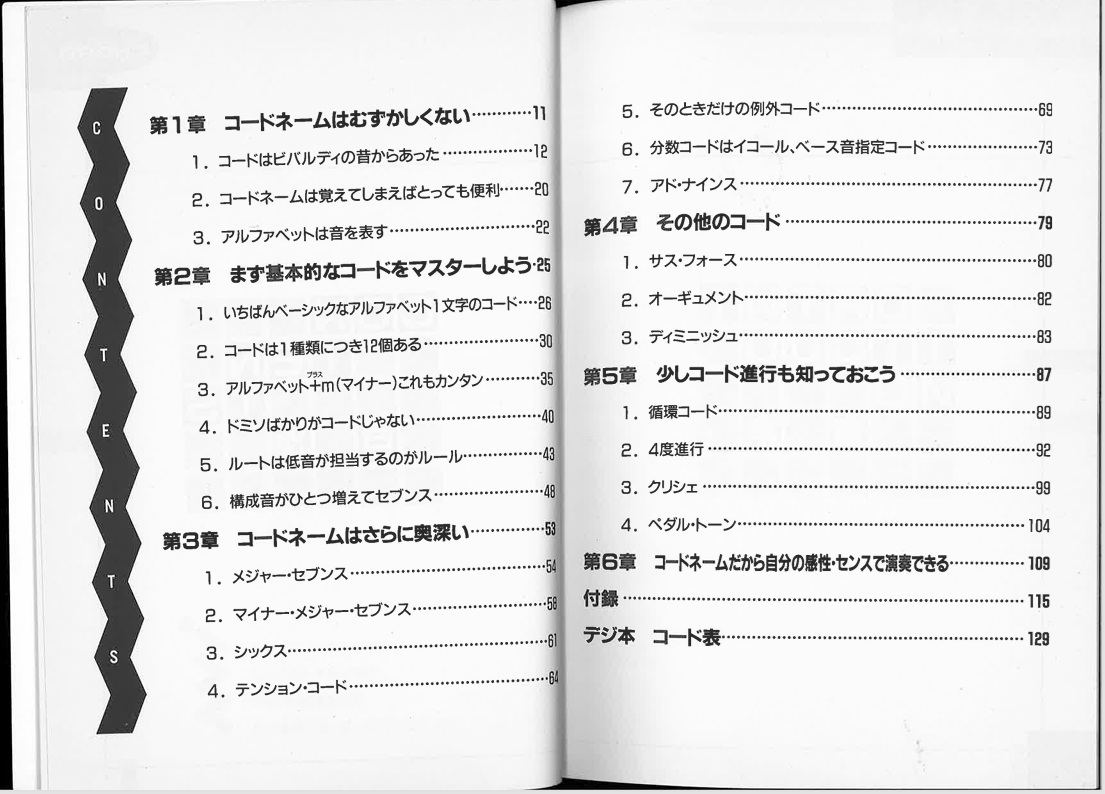 CONTENTS
第1章 コードネームはむずかしくない…………11
1. コードはビバルディの昔からあった………………12
2. コードネームは覚えてしまえばとっても便利……20
3. アルファベットは音を表す………………………22
第2章 まず基本的なコードをマスターしよう…25
1. いちばんベーシックなアルファベット1文字のコード…26
2. コードは1種類につき12個ある…………………30
プラス
3. アルファベット+m(マイナー)これもカンタン………35
4. ドミソばかりがコードじゃない……………………40
5. ルートは低音が担当するのがルール……………43
6. 構成音がひとつ増えてセブンス…………………48
第3章 コードネームはさらに奥深い…………53
1. メジャー・セブンス………………………………54
2. マイナー・メジャー・セブンス……………………58
3. シックス…………………………………………61
4. テンション・コード………………………………64
5. そのときだけの例外コード………………………69
6. 分数コードはイコール、ベース音指定コード………73
7. アド・ナインス……………………………………77
第4章 その他のコード…………………………79
1. サス・フォース……………………………………80
2. オーギュメント……………………………………82
3. ディミニッシュ……………………………………83
第5章 少しコード進行も知っておこう…………87
1. 循環コード………………………………………89
2. 4度進行…………………………………………92
3. クリシェ…………………………………………99
4. ペダル・トーン……………………………………104
第6章 コードネームだから自分の感性・センスで演奏できる………109
付録………………………………………………115
デジ本 コード表…………………………………129